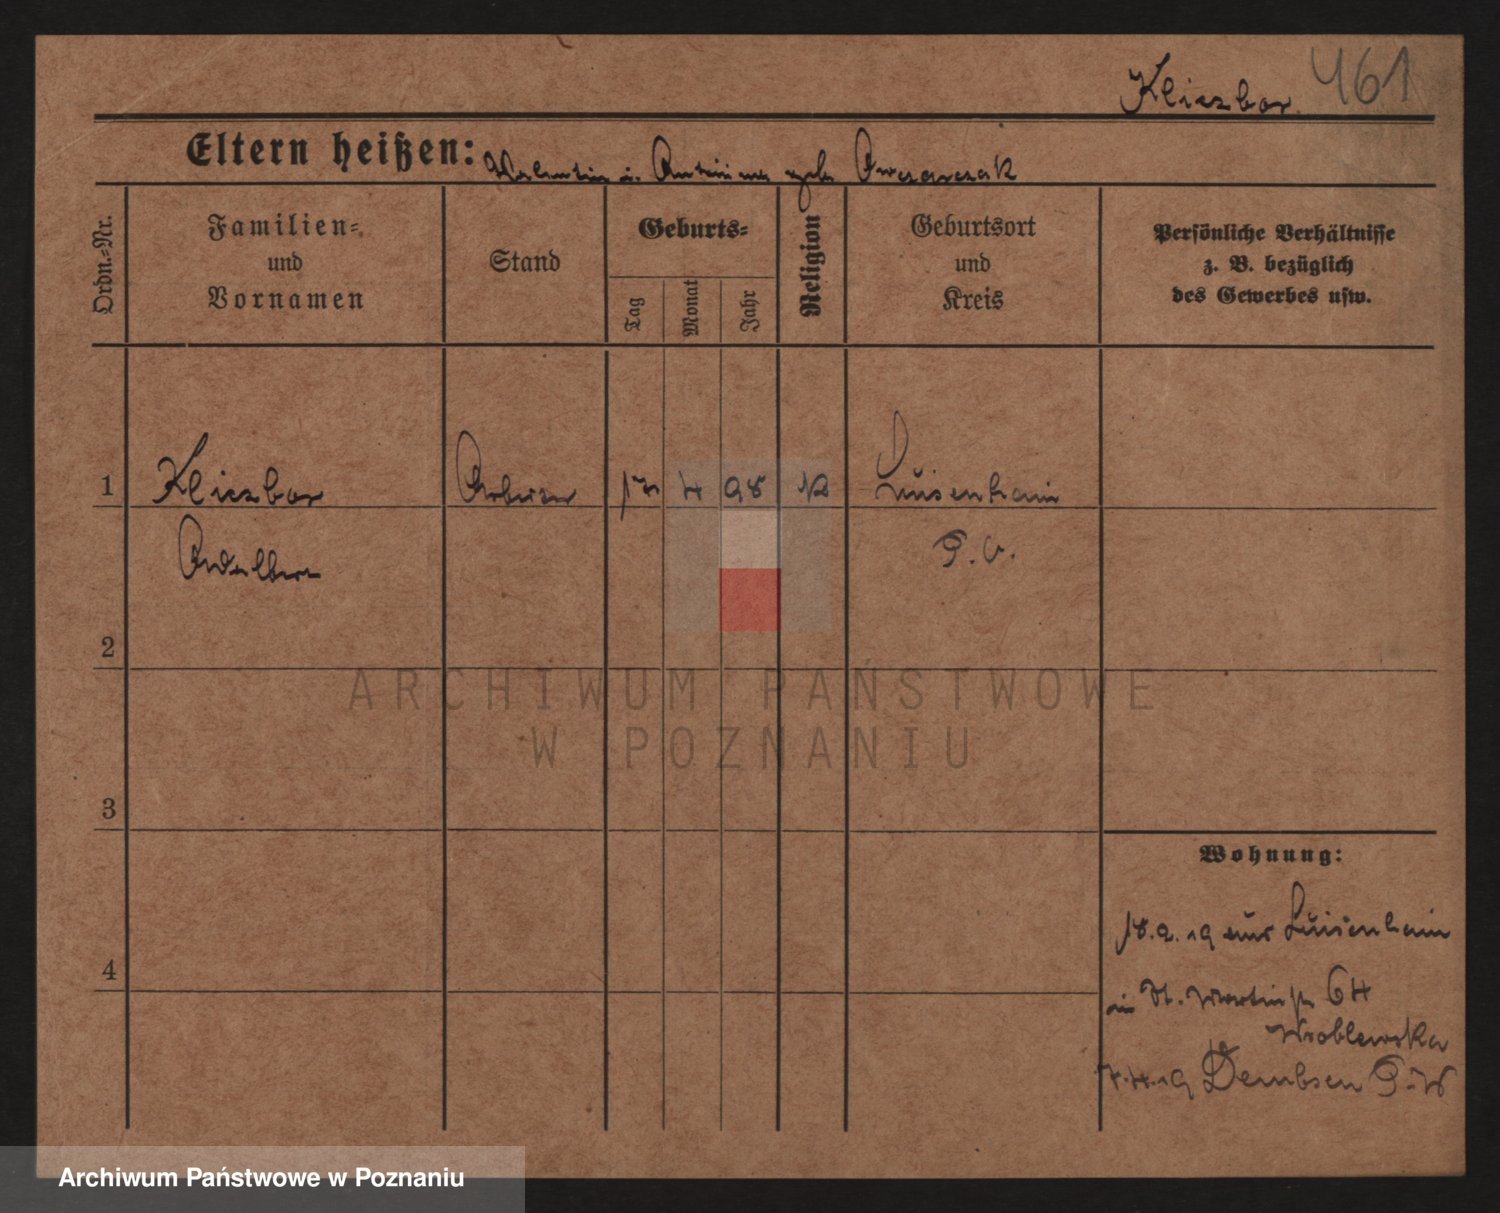 Kliezbor. 461
Eltern heißen: Valentin u. Antonina geb. Owczarczak
Ordn.-Nr.
Familien-
und
Vornamen
Stand
Geburts-
Tag
Monat
Jahr
Religion
Geburtsort
und
Kreis
Persönliche Verhältnisse
z. B. bezüglich
des Gewerbes usw.
1 Kliezbor Arbeiter 4 98 K Luisenhain
Adalbert P.O.
2
ARCHIWUM PAŃSTWOWE
W POZNANIU
3
Wohnung:
18.2.19 aus Luisenhain
4
in St. Martinstr 64
Wroblewska
Dembsen P.W
Archiwum Państwowe w Poznaniu